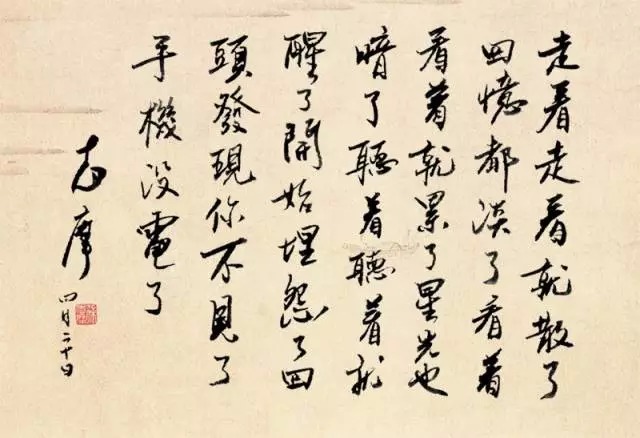 走着走着就散了
回憶都淡了看着
看着就累了星光也
暗了聽着聽着就
醒了開始埋怨了回
頭發現你不見了
手機沒電了
志摩
四月二十日